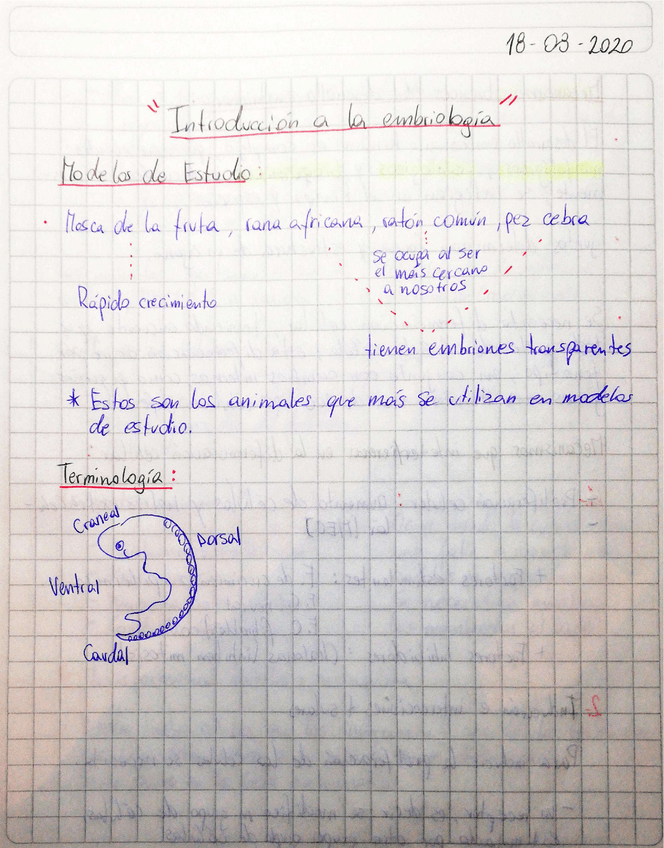 18-03-2020
"Introducción a la embriología"
Modelos de Estudio:
· Mosca de la fruta, rana africana, ratón común, pez cebra
se ocupa al ser
el más cercano
a nosotros
Rápido crecimiento
tienen embriones transparentes
* Estos son los animales que más se utilizan en modelos
de estudio.
Terminología:
Craneal
Dorsal
Ventral
Caudal